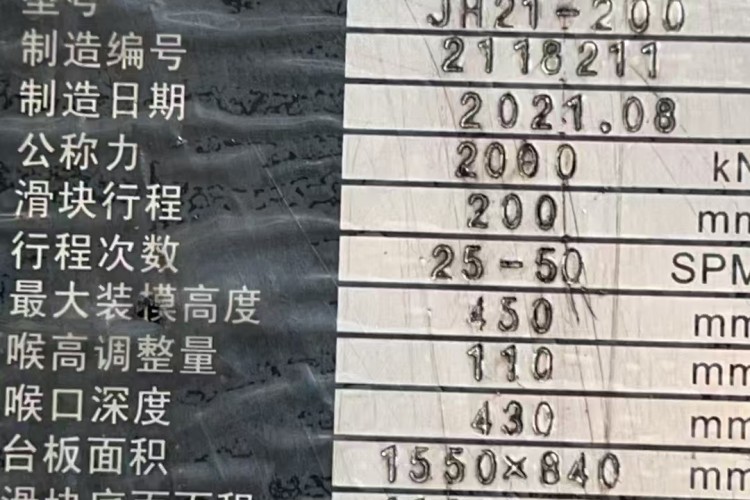 型号 JH21-200
制造编号 2118211
制造日期 2021.08
公称力 2000 kN
滑块行程 200 mm
行程次数 25-50 SPM
最大装模高度 450 mm
喉高调整量 110 mm
喉口深度 430 mm
台板面积 1550×840 mm
滑块底面面积